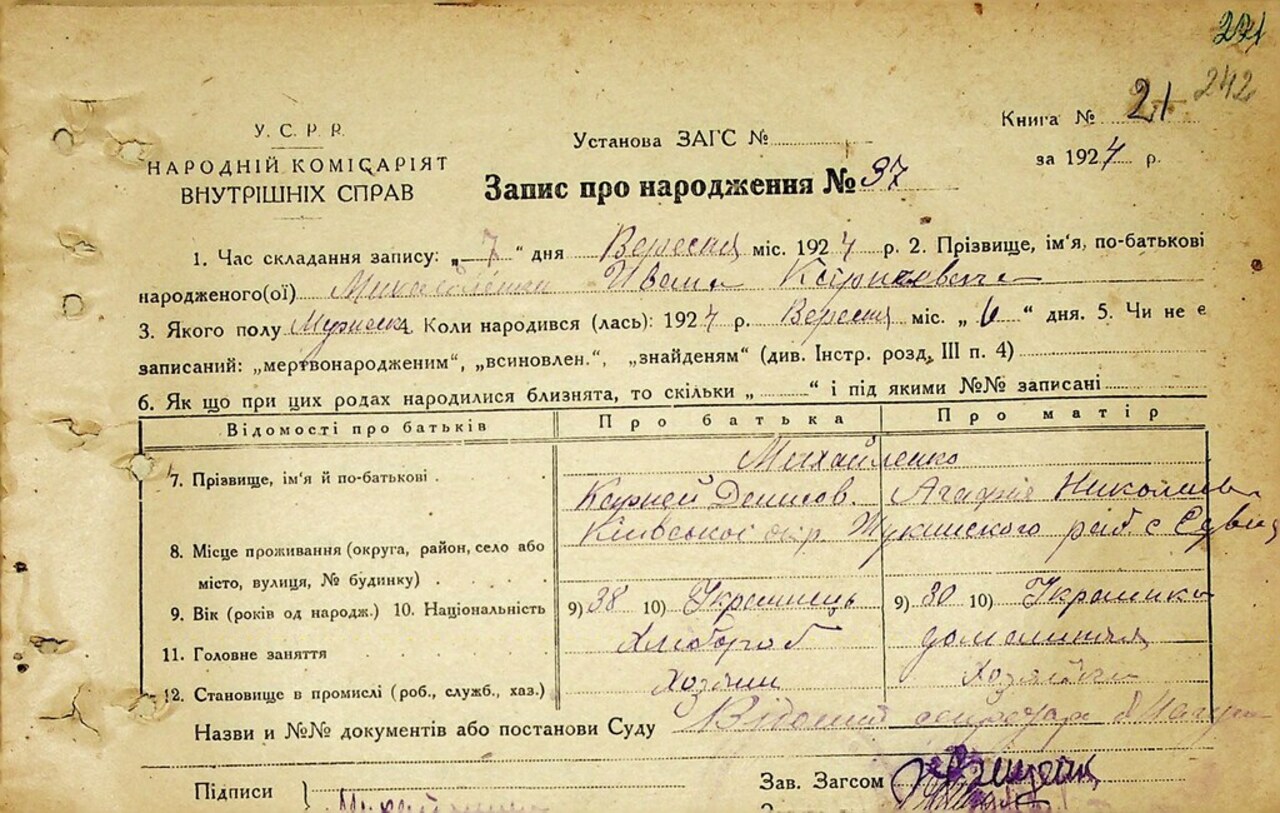 221
242
У. С. Р. Р.
НАРОДНІЙ КОМІСАРІЯТ
ВНУТРІШНІХ СПРАВ
Установа ЗАГС №
Книга № 21
за 1924 р.
Запис про народження № 37
1. Час складання запису: „ 7 “ дня Вересня міс. 1924 р. 2. Прізвище, ім‘я, по-батькові
народженого(ої) Михайленко Ивана
3. Якого полу 4. Коли народився (лась): 1924 р. Вересня міс. „ 6 “ дня. 5. Чи не є
записаний: „мертвонародженим“, „всиновлен.“, „знайденям“ (див. Інстр. розд. III п. 4)
6. Як що при цих родах народилися близнята, то скільки „ “ і під якими №№ записані
Відомості про батьків Про батька Про матір
7. Прізвище, ім‘я й по-батькові Михайленко
Карней Денисов. Агафия Николаев
8. Місце проживання (округа, район, село або Київської окр. с
місто, вулиця, № будинку)
9. Вік (років од народж.) 10. Національність 9) 38 10) Украинець 9) 30 10) Украинка
11. Головне заняття Хлібороб домашня
12. Становище в промислі (роб., служб., хаз.) Хозяин Хозяйка
Назви и №№ документів або постанови Суду
Підписи Зав. Загсом